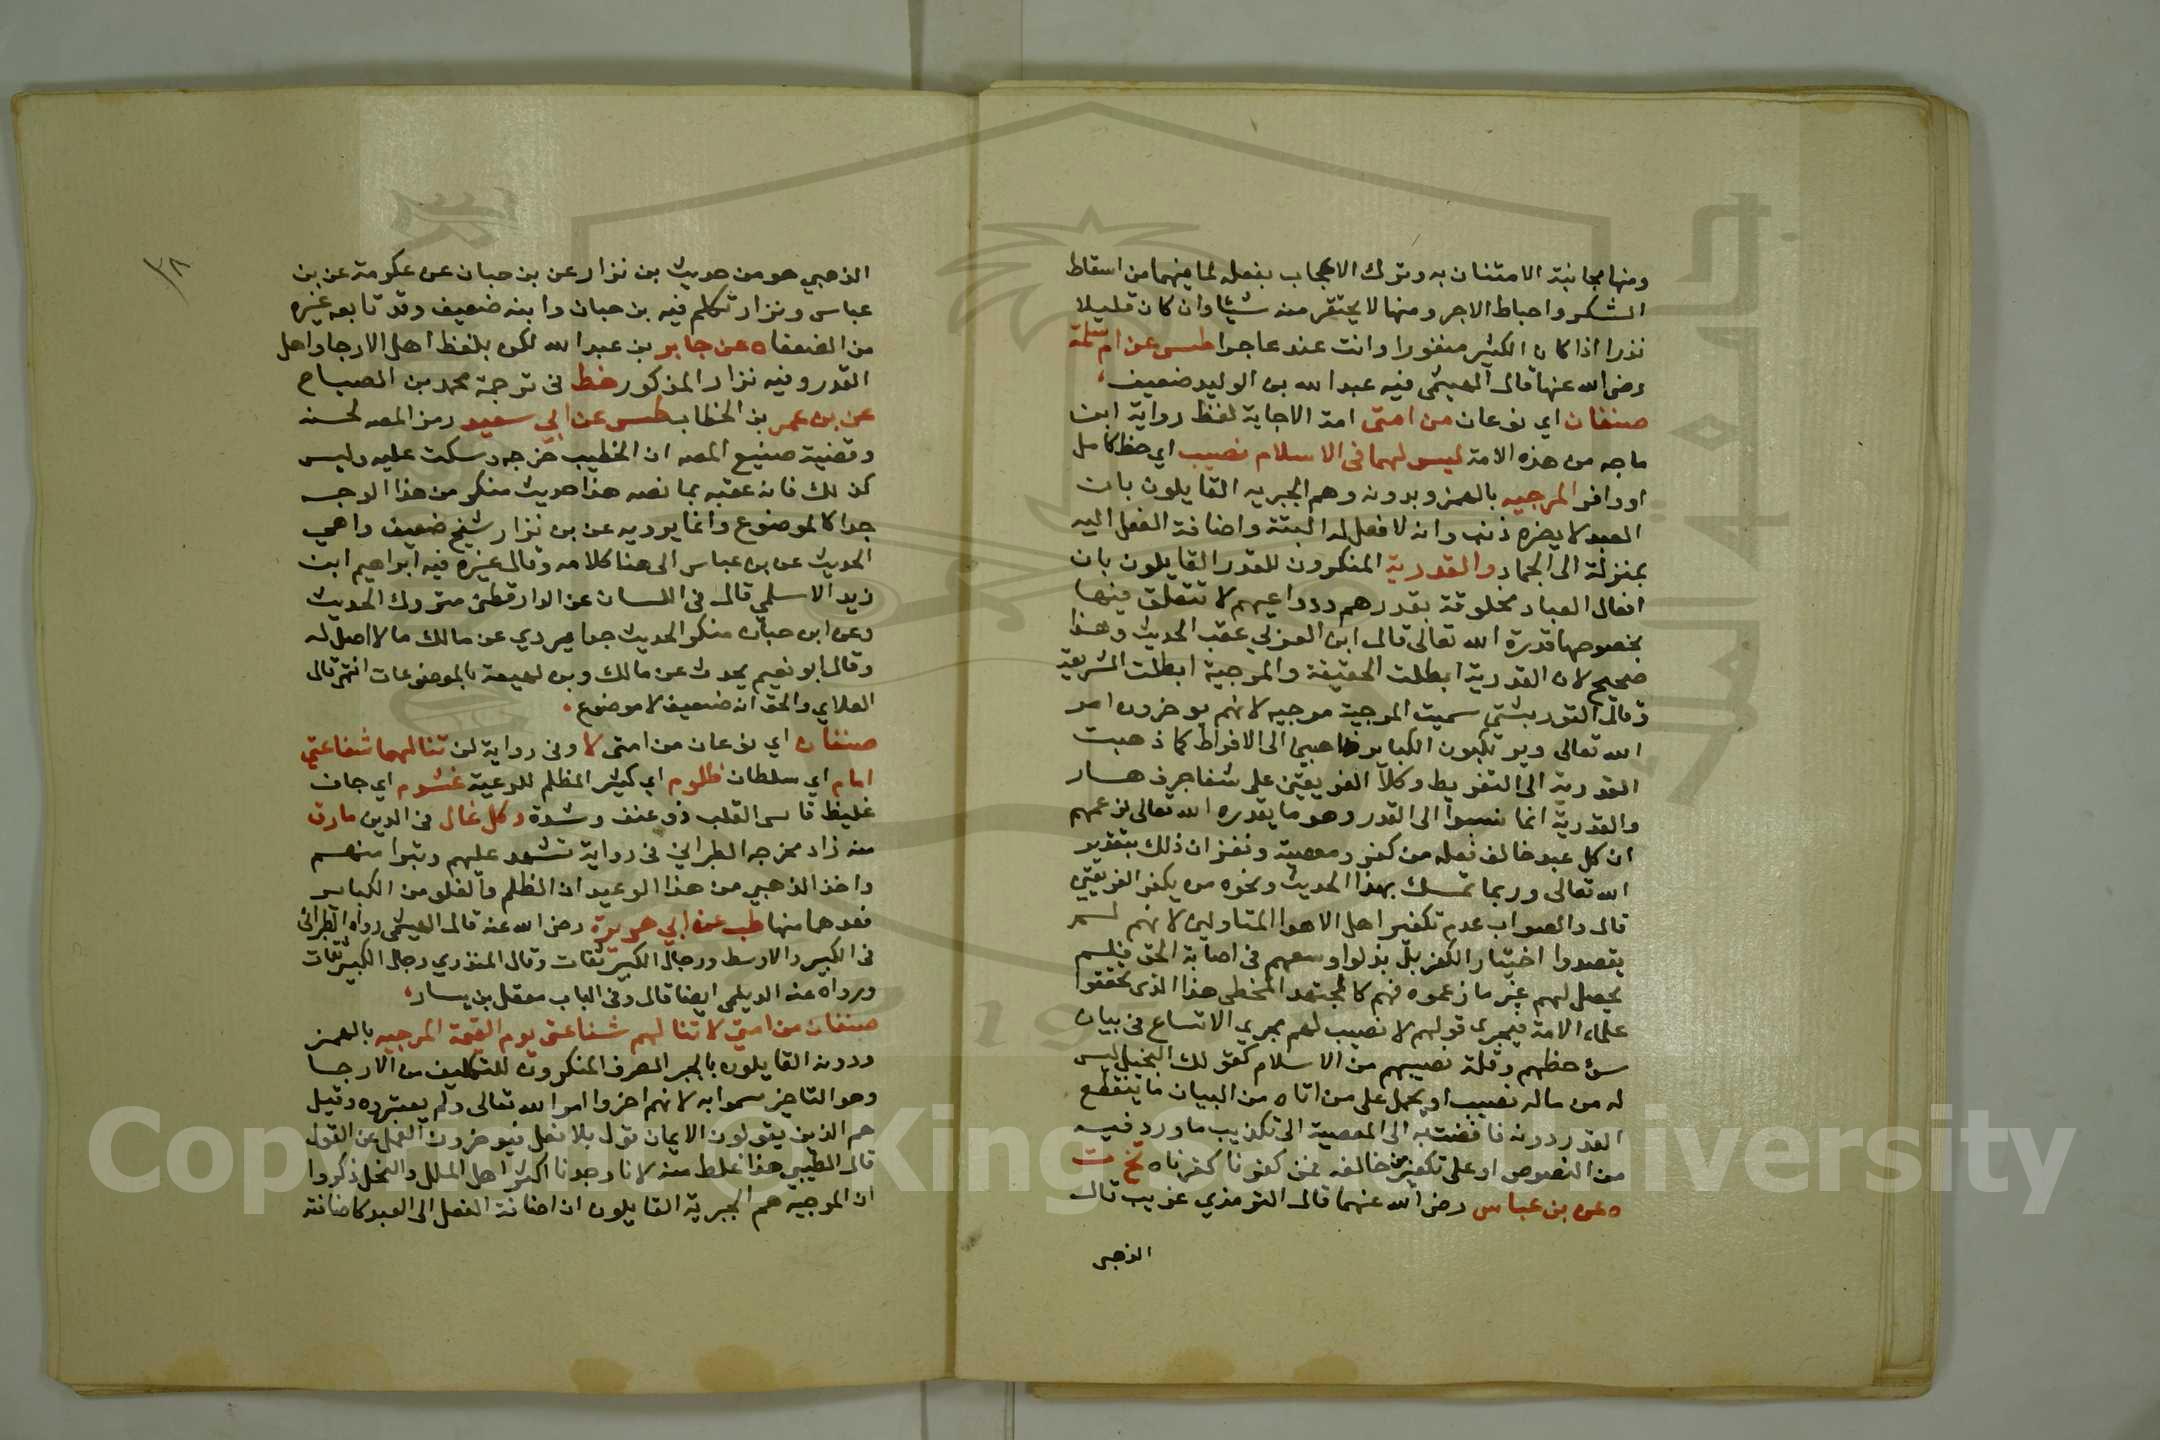 ومنها مجانبة الامتنان به وترك الاعجاب بفعله لما فيهما من اسقاط
الشكر واحباط الاجر ومنها لا يحتقر منه شيئا وان كان قليلا
نزرا اذا كان الكثير منفورا وانت عنه عاجرا طس عن ام سلمة
رضى الله عنها قال الهيثمى فيه عبد الله بن الوليد ضعيف
صنفان اي نوعان من امتى امة الاجابة لفظ رواية ابن
ماجه من هذه الامة ليس لهما فى الاسلام نصيب اي حظ كامل
او وافر المرجيه بالهمز وبدونه وهم الجبريه القايلون بان
العبد لا يضره ذنب وانه لا فعل له البتة واضافة الفعل اليه
بمنزلة الى الجماد والقدرية المنكرون للقدر القايلون بان
افعال العباد مخلوقة بقدرهم ودواعيهم لا تتعلق فيها
بخصوصها قدرة الله تعالى قال ابن العربي عقب الحديث وهذا
صحيح لان القدرية ابطلت الحقيقة والمرجية ابطلت الشريعة
وقال التوربشتي سميت المرجية مرجيه لانهم يوخرون امر
الله تعالى ويرتكبون الكباير ذاهبين الى الافراط كما ذهبت
القدرية الى التفريط وكلا الفريقين على شفا جرف هار
والقدرية انما نسبوا الى القدر وهو ما يقدره الله تعالى لزعمهم
ان كل عبد خالف فعله من كفر ومعصية ونفو ان ذلك بتقدير
الله تعالى وربما تمسك بهذا الحديث ونحوه من يكفر الفريقين
قال والصواب عدم تكفير اهل الاهوا المتاولين لانهم لم
يقصدوا اختيار الكفر بل بذلوا وسعهم فى اصابة الحق فلم
يحصل لهم غير ما زعموه فهم كالمجتهد المخطى هذا الذى تحققوا
علماء الامة فيجرى قولهم لا نصيب لهم مجرى الاتساع فى بيان
سوء حظهم وقلة نصيبهم من الاسلام كقولك البخيل ليس
له من ماله نصيب او يحمل على من اتاه من البيان ما ينقطع
العذر دونه فافضت به الى المعصية الى تكذيب ما ورد فيه
من النصوص او على تكفير من خالفه فمن كفرنا كفرناه تخ ت
ه عن بن عباس رضى الله عنهما قال الترمذي غريب قال
الذهبي
٣٨
الذهبي هو من حديث بن نزار عن بن حبان عن عكرمة عن بن
عباس ونزار تكلم فيه بن حبان وابنه ضعيف وقد تابعه غيره
من الضعفاه عن جابر بن عبد الله لكن بلفظ اهل الارجا واهل
القدر وفيه نزار المذكور خط فى ترجمة محمد بن الصباح
عن بن عمر بن الخطاب طس عن ابي سعيد رمز المصه لحسنه
وقضية صنيع المصه ان الخطيب خرجه وسكت عليه وليس
كذلك فانه عقبه بما نصه هذا حديث منكر من هذا الوجه
جدا كالموضوع وانما يرويه عن بن نزار شيخ ضعيف واهي
الحديث عن بن عباس الى هنا كلامه وقال غيره فيه ابراهيم ابن
زيد الاسلمي قال فى اللسان عن الدارقطنى متروك الحديث
وعن ابن حبان منكر الحديث جدا يروي عن مالك ما لا اصل له
وقال ابو نعيم يحدث عن مالك وبن لهيعة بالموضوعات انتهى قال
العلاي والحق انه ضعيف لا موضوع
صنفان اي نوعان من امتى لا وفى رواية لن تنالهما شفاعتي
امام اي سلطان ظلوم اي كثير الظلم للرعية غشوم اي جاف
غليظ قاسى القلب ذو عنف وشدة وكل غال فى الدين مارق
منه زاد مخرجه الطبراني فى رواية تشهد عليهم وتبرا منهم
واخذ الذهبي من هذا الوعيد ان الظلم والغلو من الكباير
فعدهما منها طب عن ابي هريرة رضى الله عنه قال الهيثمى رواه الطبرانى
فى الكبير والاوسط ورجال الكبير ثقات وقال المنذري رجال الكبير ثقات
ورواه عنه الديلمي ايضا قال وفى الباب معقل بن يسار
صنفان من امتي لا تنالهم شفاعتى يوم القيمة المرجيه بالهمز
ودونه القايلون بالجبر الصرف المنكرون للتكليف من الارجا
وهو التاخير سموا به لانهم اخروا امر الله تعالى ولم يعتبروه وقيل
هم الذين يقولون الايمان قول بلا فعل فيوخرون العمل عن القول
قال الطيبي هذا غلط منه لانا وجدنا اكثر اهل الملل والنحل ذكروا
ان المرجية هم الجبرية القايلون ان اضافة الفعل الى العبد كاضافة
Copyright © King Saud University